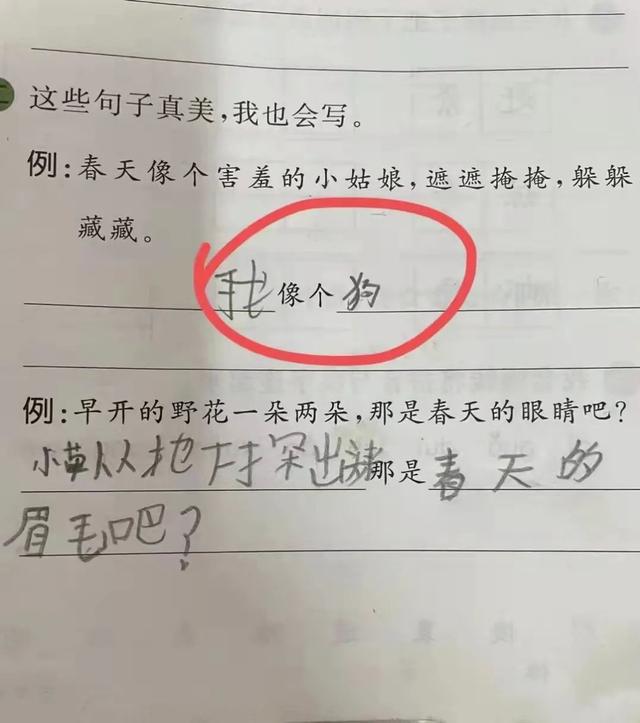 这些句子真美，我也会写。
例：春天像个害羞的小姑娘，遮遮掩掩，躲躲
藏藏。
我像个狗
例：早开的野花一朵两朵，那是春天的眼睛吧？
小草从地探出那是春天的
眉毛吧？